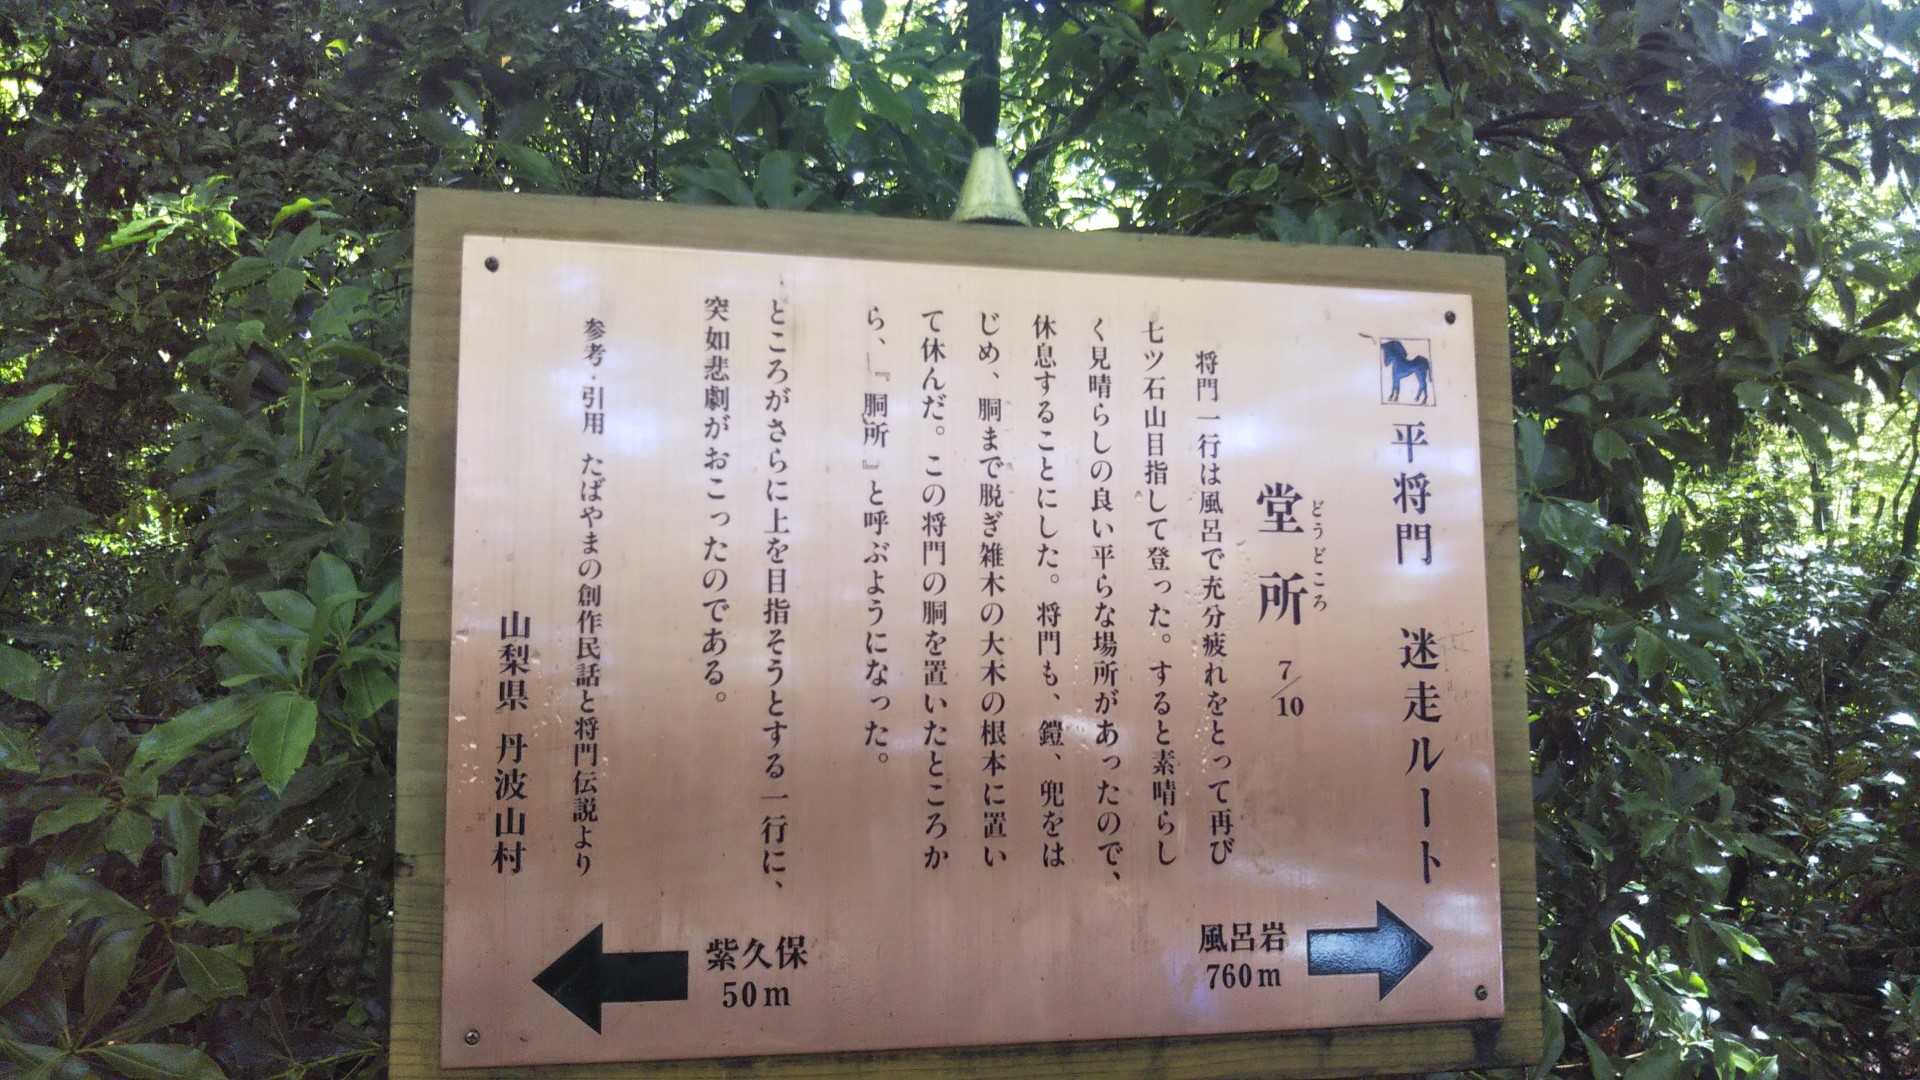 平将門　迷走ルート
どうどころ
堂所 7/10
将門一行は風呂で充分疲れをとって再び
七ツ石山目指して登った。すると素晴らし
く見晴らしの良い平らな場所があったので、
休息することにした。将門も、鎧、兜をは
じめ、胴まで脱ぎ雑木の大木の根本に置い
て休んだ。この将門の胴を置いたところか
ら、『胴所』と呼ぶようになった。
ところがさらに上を目指そうとする一行に、
突如悲劇がおこったのである。
参考・引用　たばやまの創作民話と将門伝説より
山梨県 丹波山村
風呂岩
760m
紫久保
50m